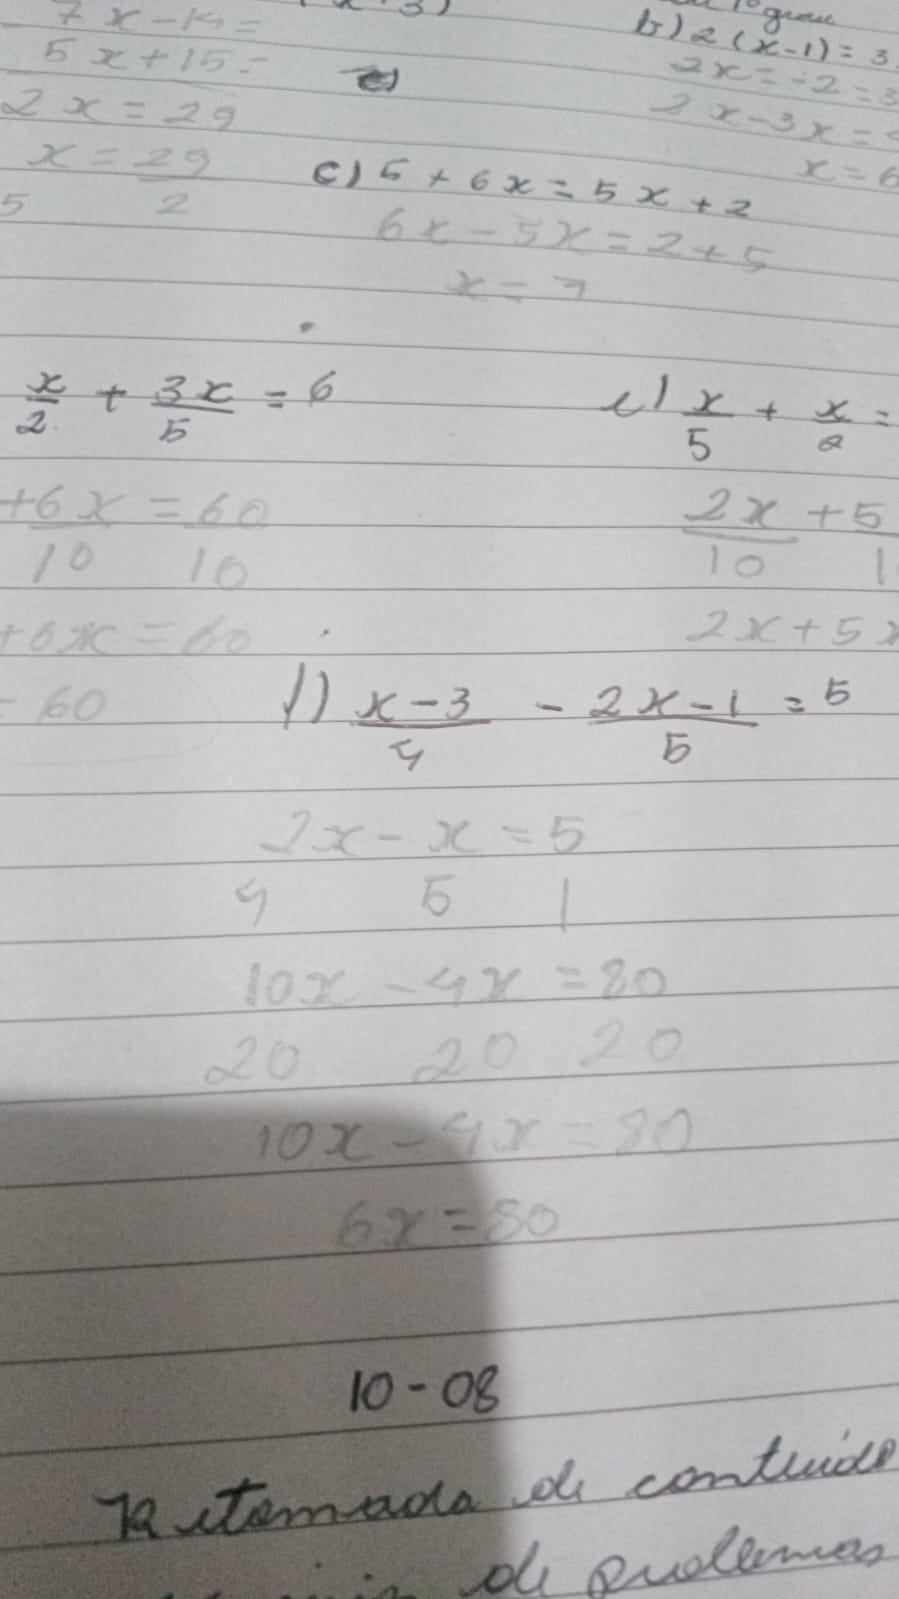 7x-14=
5x+15=
2x=29
x=29
5 2
b) 2(x-1)=3
2x=-2=3
2x-3x=
x=6
c) 5+6x=5x+2
6x-5x=2+5
x=7
x/2 + 3x/5 = 6
+6x/10 = 60/10
+6x=60
=60
e) x/5 + x/2 =
2x/10 + 5
2x+5x
f) x-3/4 - 2x-1/5 = 5
2x-x=5
4 5 1
10x-4x=80
20 20 20
10x-4x=80
6x=80
10-08
Retomada de conteúdo
de problemas